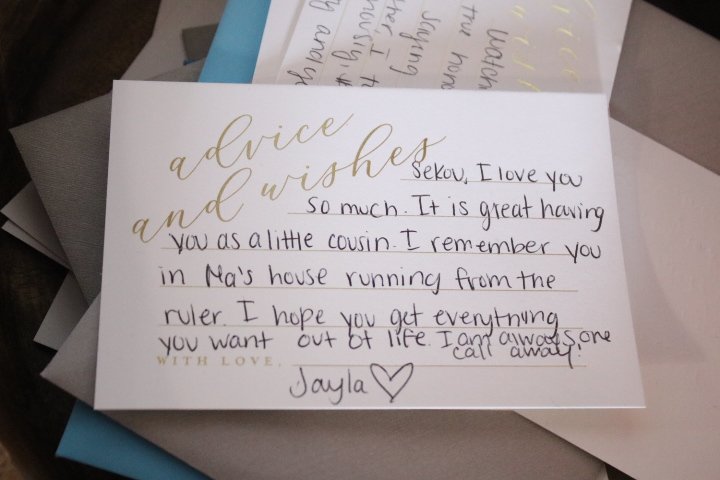 advice
and wishes
Sekou, I love you
so much. It is great having
you as a little cousin. I remember you
in Ma's house running from the
ruler. I hope you get everything
you want out of life. I am always one
call away!
WITH LOVE,
Jayla
Watch
the
saying